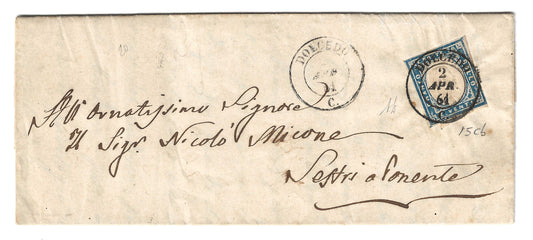 DOLCEDO
61
C.
DOLCEDO
2
APR
61
15C6
All'Ornatissimo Signore
Il Sigr. Nicolò Micone
Sestri a Ponente